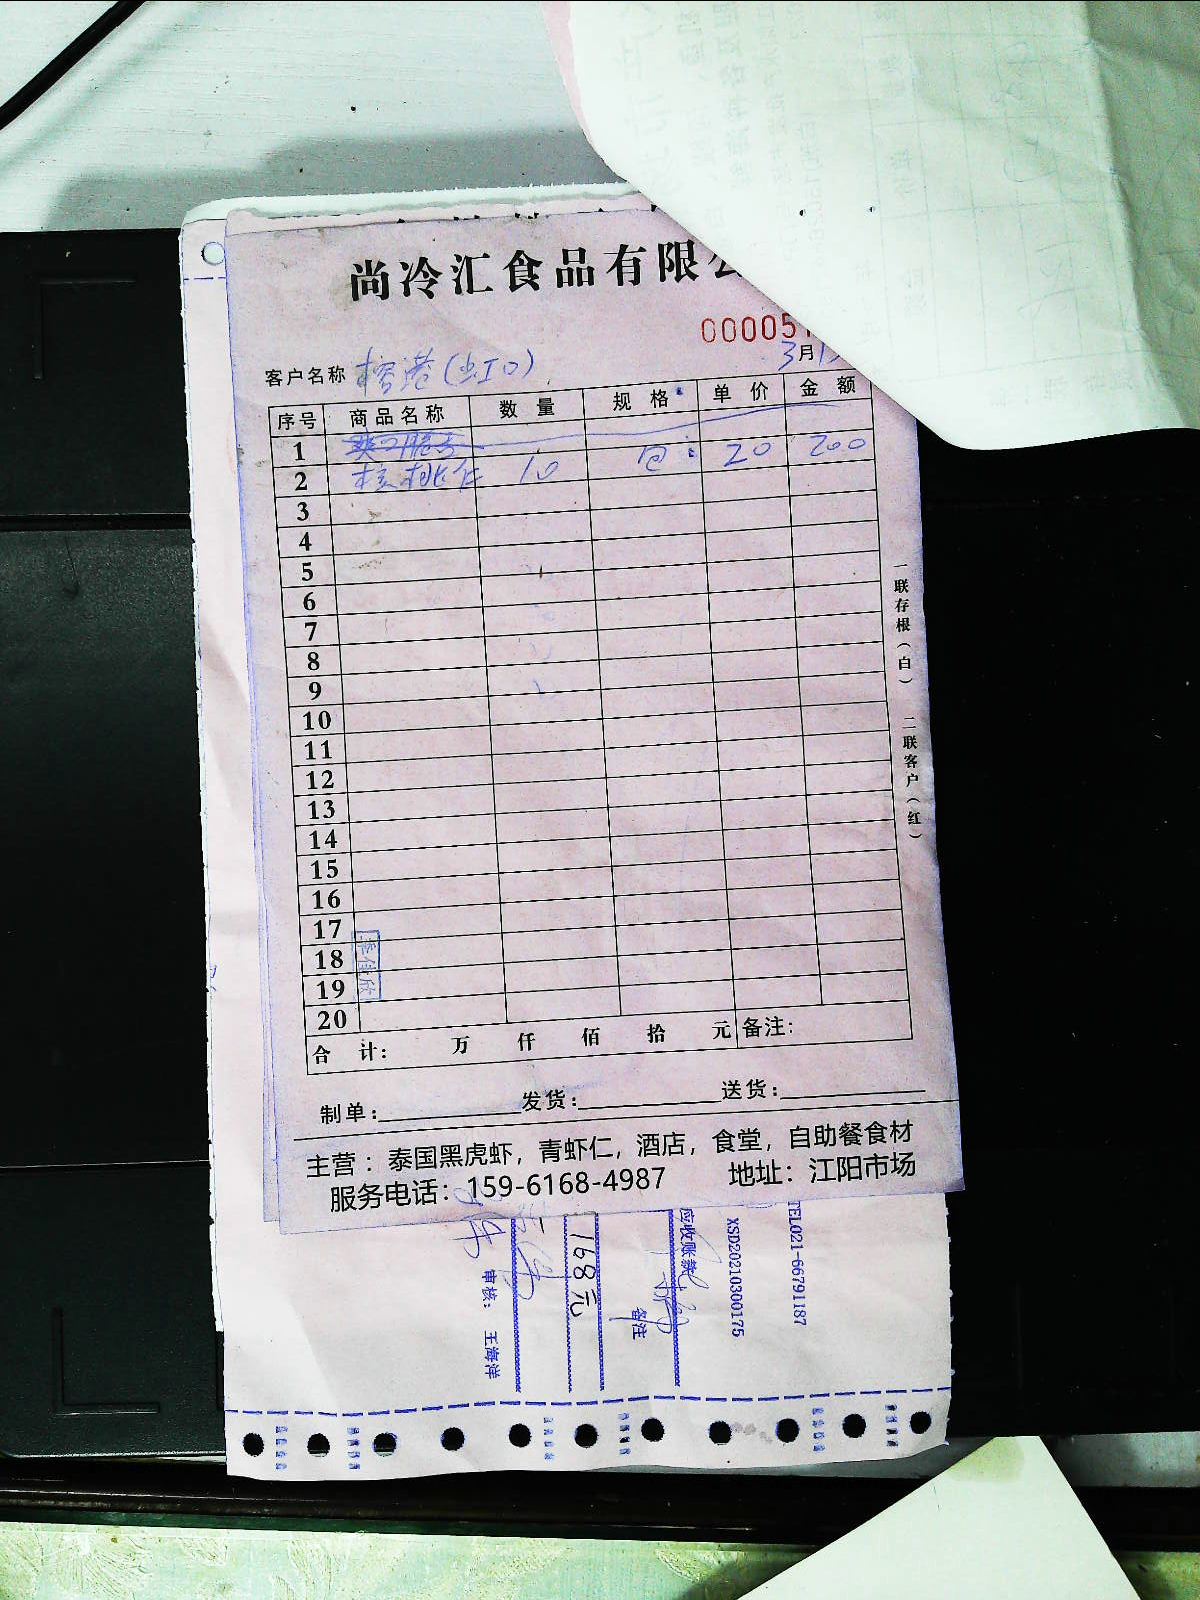 尚冷汇食品有限公
00005
3月1
客户名称 榕港(虹口)
序号 商品名称 数量 规格 单价 金额
1
2 核桃仁 10 包 20 200
3
4
5
6
7
8
9
10
11
12
13
14
15
16
17
18
19
20
李佳欣
合计: 万 仟 佰 拾 元 备注:
制单: 发货: 送货:
主营：泰国黑虎虾，青虾仁，酒店，食堂，自助餐食材
服务电话：159-6168-4987 地址：江阳市场
一联存根(白) 二联客户(红)
TEL021-66791187
XSD20210300175
应收账款
备注
168元
审核： 王海洋